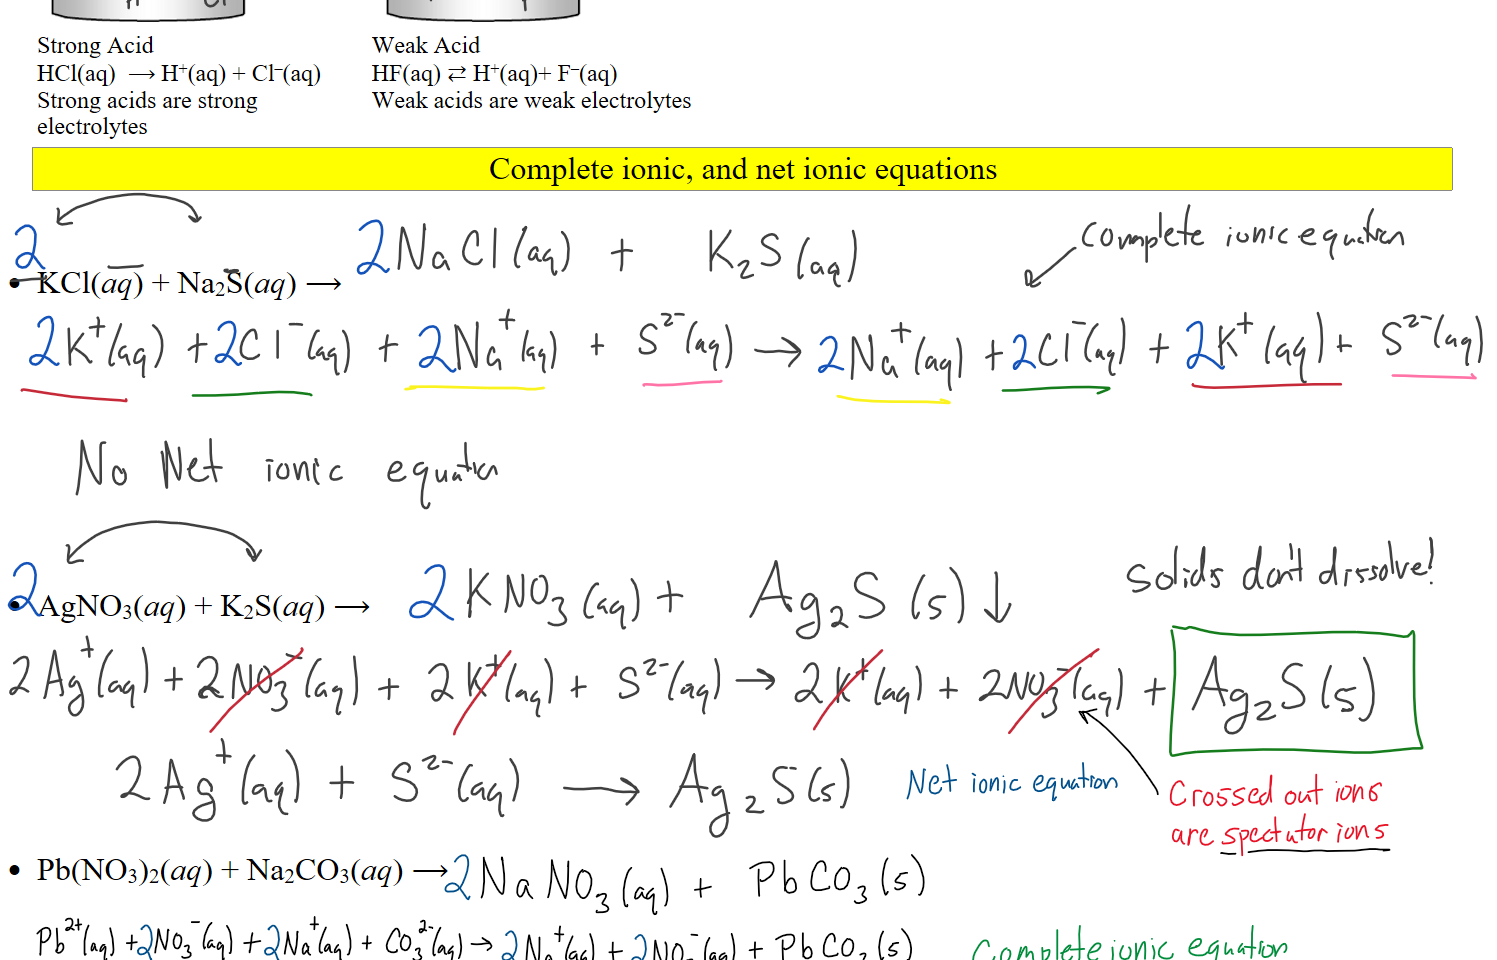 Strong Acid
HCl(aq) ⟶ H⁺(aq) + Cl⁻(aq)
Strong acids are strong
electrolytes
Weak Acid
HF(aq) ⇄ H⁺(aq)+ F⁻(aq)
Weak acids are weak electrolytes
Complete ionic, and net ionic equations
complete ionic equation
• 2 KCl(aq) + Na₂S(aq) ⟶ 2NaCl(aq) + K₂S(aq)
2K⁺(aq) + 2Cl⁻(aq) + 2Na⁺(aq) + S²⁻(aq) → 2Na⁺(aq) + 2Cl⁻(aq) + 2K⁺(aq) + S²⁻(aq)
No Net ionic equation
Solids don't dissolve!
• 2 AgNO₃(aq) + K₂S(aq) ⟶ 2KNO₃(aq) + Ag₂S(s)↓
2Ag⁺(aq) + 2NO₃⁻(aq) + 2K⁺(aq) + S²⁻(aq) → 2K⁺(aq) + 2NO₃⁻(aq) + Ag₂S(s)
2Ag⁺(aq) + S²⁻(aq) ⟶ Ag₂S(s) Net ionic equation
Crossed out ions
are spectator ions
• Pb(NO₃)₂(aq) + Na₂CO₃(aq) ⟶ 2NaNO₃(aq) + PbCO₃(s)
Pb²⁺(aq) + 2NO₃⁻(aq) + 2Na⁺(aq) + CO₃²⁻(aq) → 2Na⁺(aq) + 2NO₃⁻(aq) + PbCO₃(s) Complete ionic equation